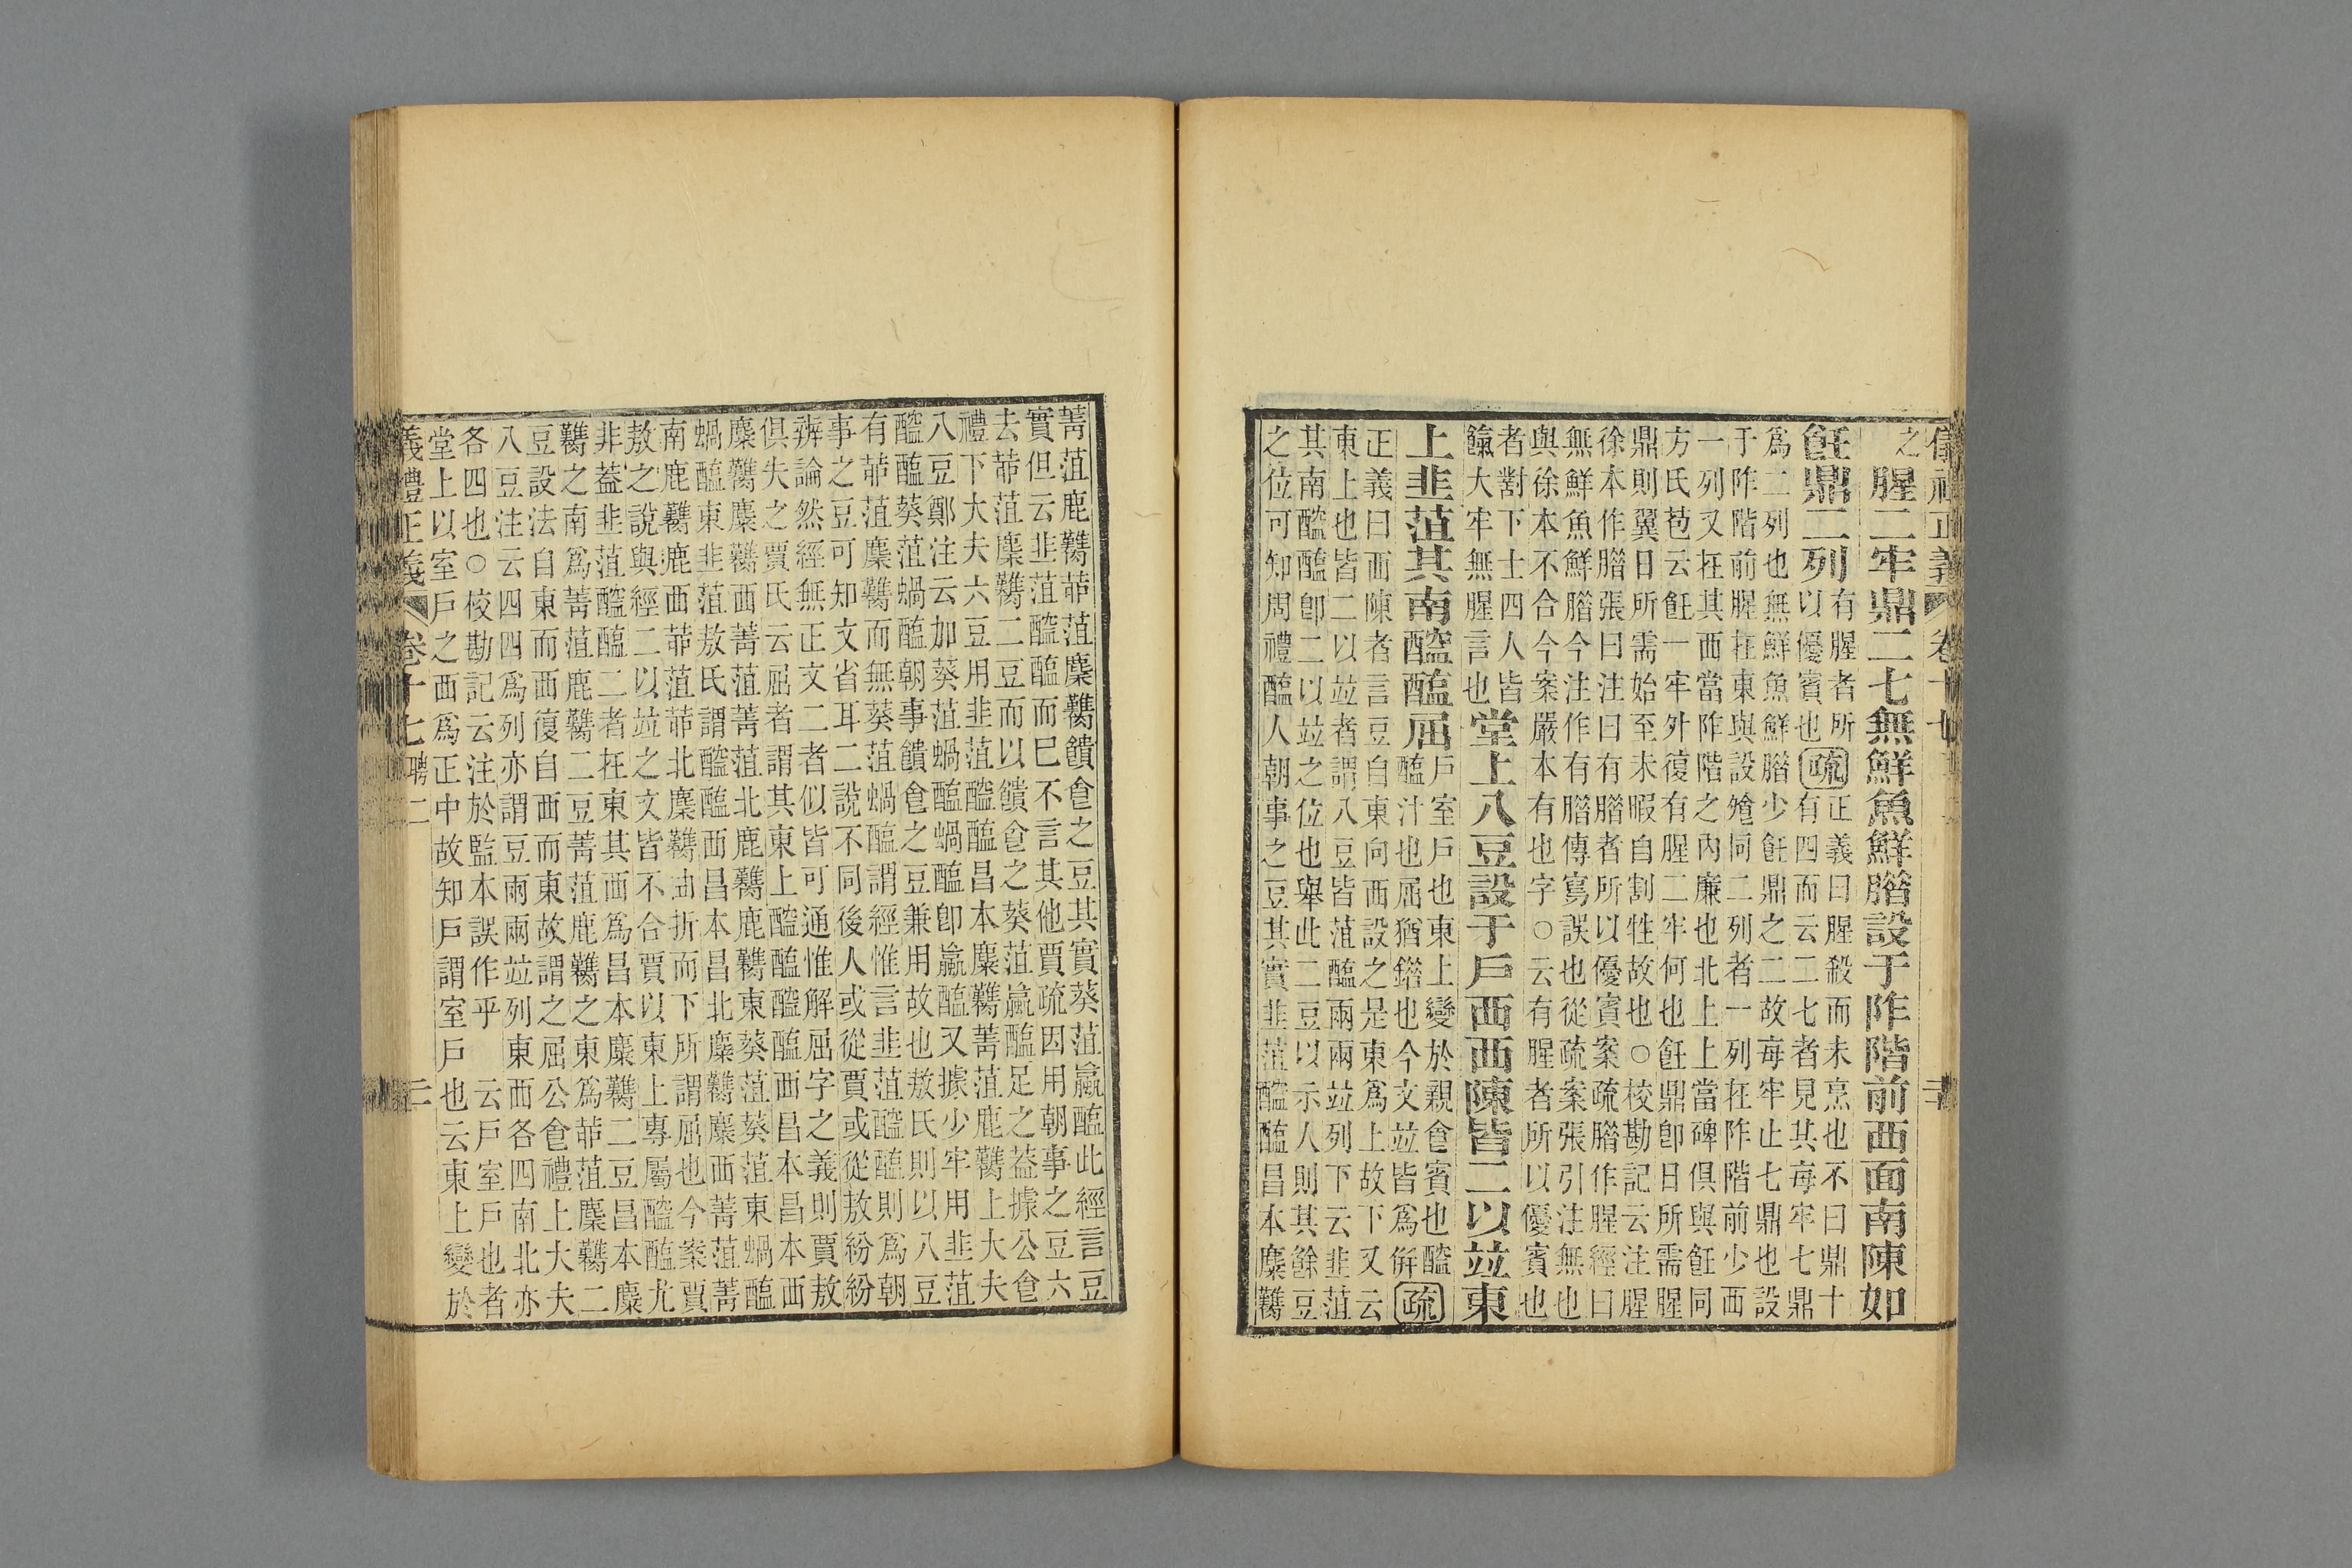 儀禮正義 卷十七 二
之
腥二牢鼎二七無鮮魚鮮腊設于阼階前西面南陳如
飪鼎二列
有腥者所
以優賓也
疏
正義曰腥殺而未烹也不曰鼎十
有四而云二七者見其每牢七鼎
爲二列也無鮮魚鮮腊少飪鼎之二故每牢止七鼎也設
于阼階前腥在東與設飧同二列者一列在阼階前少西
一列又在其西當阼階之內廉也北上上當碑俱與飪同
方氏苞云飪一牢外復有腥二牢何也飪鼎卽日所需腥
鼎則翼日所需始至未暇自割牲故也○校勘記云注腥
徐本作腊張曰注曰有腊者所以優賓案疏腊作腥經曰
無鮮魚鮮腊今注作有腊傳寫誤也從疏案張引注無也
與徐本不合今案嚴本有也字○云有腥者所以優賓也
者對下士四人皆
餼大牢無腥言也
堂上八豆設于戶西西陳皆二以竝東
上韭菹其南醓醢屈
戶室戶也東上變於親食賓也醓
醢汁也屈猶錯也今文竝皆爲併
疏
正義曰西陳者言豆自東向西設之是東爲上故下又云
東上也皆二以竝者謂八豆皆菹醢兩兩竝列下云韭菹
其南醓醢卽二以竝之位也舉此二豆以示人則其餘豆
之位可知周禮醢人朝事之豆其實韭菹醓醢昌本麋臡
菁菹鹿臡茆菹麋臡饋食之豆其實葵菹蠃醢此經言豆
實但云韭菹醓醢而已不言其他賈疏因用朝事之豆六
去茆菹麋臡二豆而以饋食之葵菹蠃醢足之蓋據公食
禮下大夫六豆用韭菹醓醢昌本麋臡菁菹鹿臡上大夫
八豆鄭注云加葵菹蝸醢蝸醢卽蠃醢又據少牢用韭菹
醓醢葵菹蝸醢朝事饋食之豆兼用故也敖氏則以八豆
有茆菹麋臡而無葵菹蝸醢謂經惟言韭菹醓醢則爲朝
事之豆可知文省耳二說不同後人或從賈或從敖紛紛
辨論然經無正文二者似皆可通惟解屈字之義則賈敖
俱失之賈氏云屈者謂其東上醓醢醓醢西昌本昌本西
麋臡麋臡西菁菹菁菹北鹿臡鹿臡東葵菹葵菹東蝸醢
蝸醢東韭菹敖氏謂醓醢西昌本昌北麋臡麋西菁菹菁
南鹿臡鹿西茆菹茆北麋臡曲折而下所謂屈也今案賈
敖之說與經二以竝之文皆不合賈以東上專屬醓醢尤
非蓋韭菹醓醢二者在東其西爲昌本麋臡二豆昌本麋
臡之南爲菁菹鹿臡二豆菁菹鹿臡之東爲茆菹麋臡二
豆設法自東而西復自西而東故謂之屈公食禮上大夫
八豆注云四四爲列亦謂豆兩兩竝列東西各四南北亦
各四也○校勘記云注於監本誤作乎　云戶室戶也者
堂上以室戶之西爲正中故知戶謂室戶也云東上變於
儀禮正義 卷十七 聘二 二